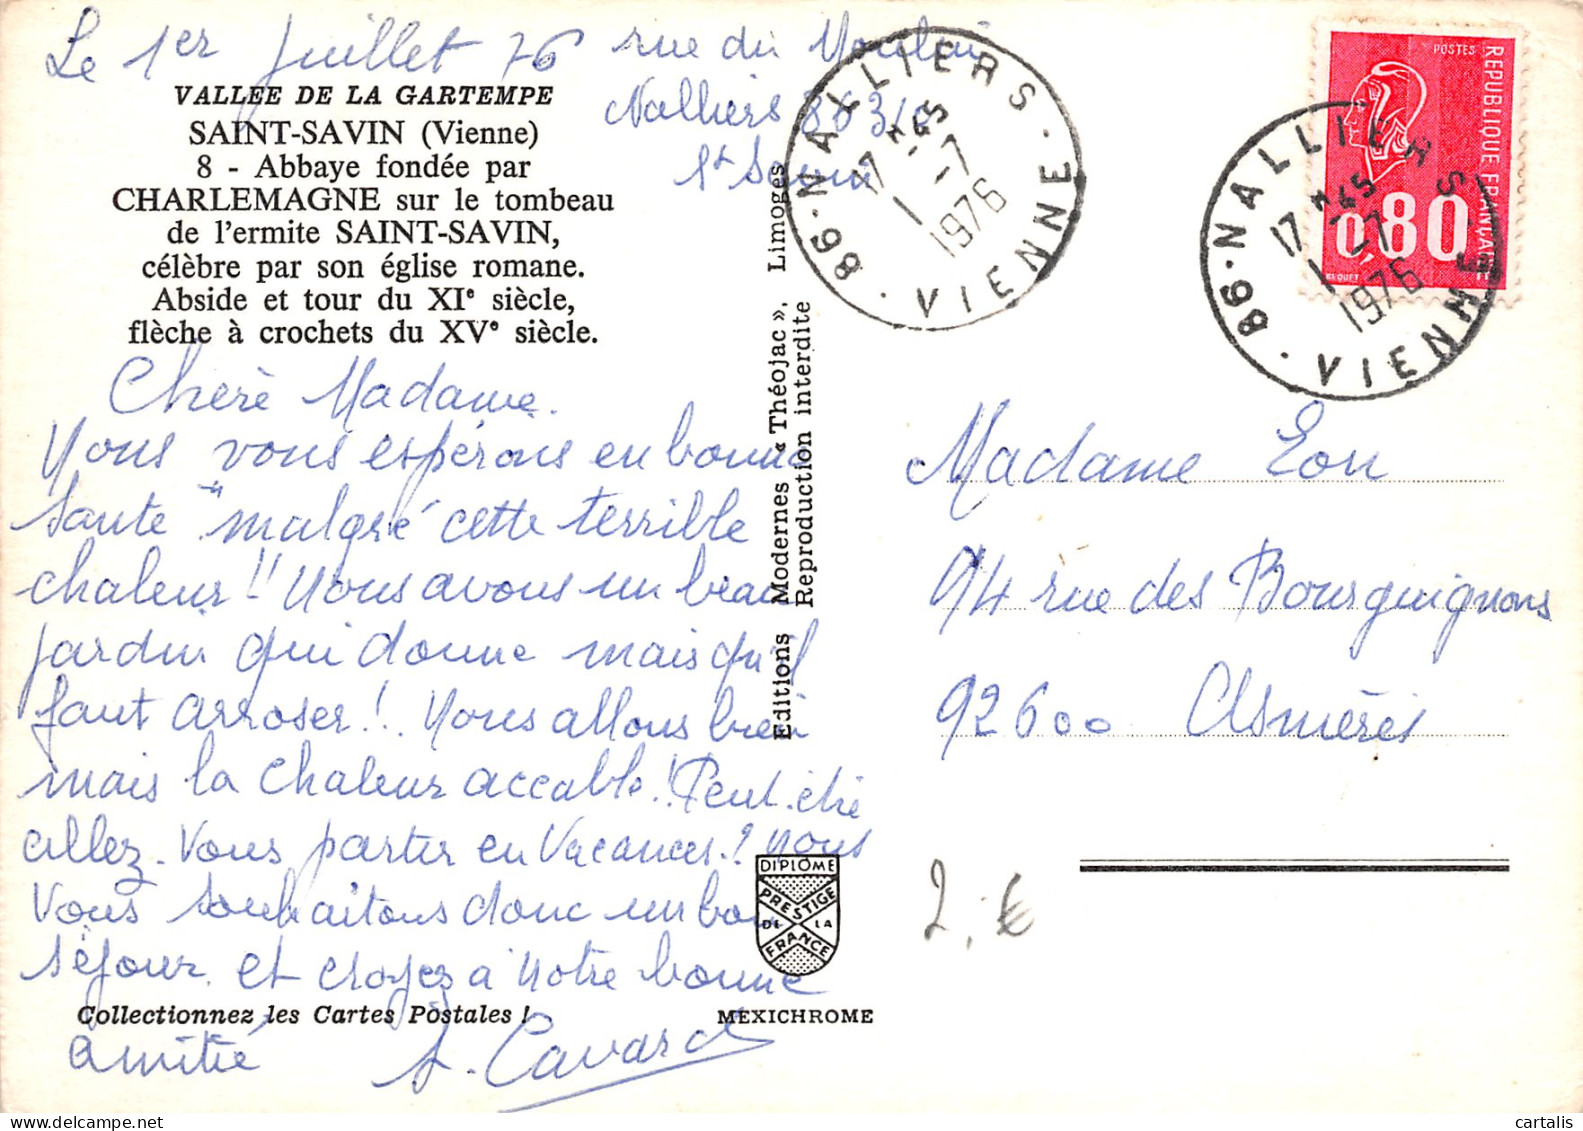 Le 1er Juillet 76 rue du Moulin
Nalliers 86310
St Savin
VALLÉE DE LA GARTEMPE
SAINT-SAVIN (Vienne)
8 - Abbaye fondée par
CHARLEMAGNE sur le tombeau
de l'ermite SAINT-SAVIN,
célèbre par son église romane.
Abside et tour du XIe siècle,
flèche à crochets du XVe siècle.
Chère Madame.
Nous vous espérons en bonne
Santé "malgré cette terrible
chaleur!! Nous avons un beau
jardin qui donne mais qu'il
faut arroser!. Nous allons bien
mais la chaleur accable! Peut.être
allez-Vous partir en Vacances.? Nous
Vous souhaitons donc un bon
séjour. et croyez à Notre bonne
amitié A. Cavard
Collectionnez les Cartes Postales !
Editions Modernes « Théojac », Limoges
Reproduction interdite
DIPLOME
PRESTIGE
DE LA
FRANCE
MEXICHROME
86 · NALLIERS · VIENNE ·
17 H 45
1 -7
1976
POSTES
REPUBLIQUE FRANÇAISE
0,80
BEQUET
86 · NALLIERS · VIENNE ·
17 H 45
1 -7
1976
Madame Eon
94 rue des Bourguignons
92600 Asnières
2. €
cartalis